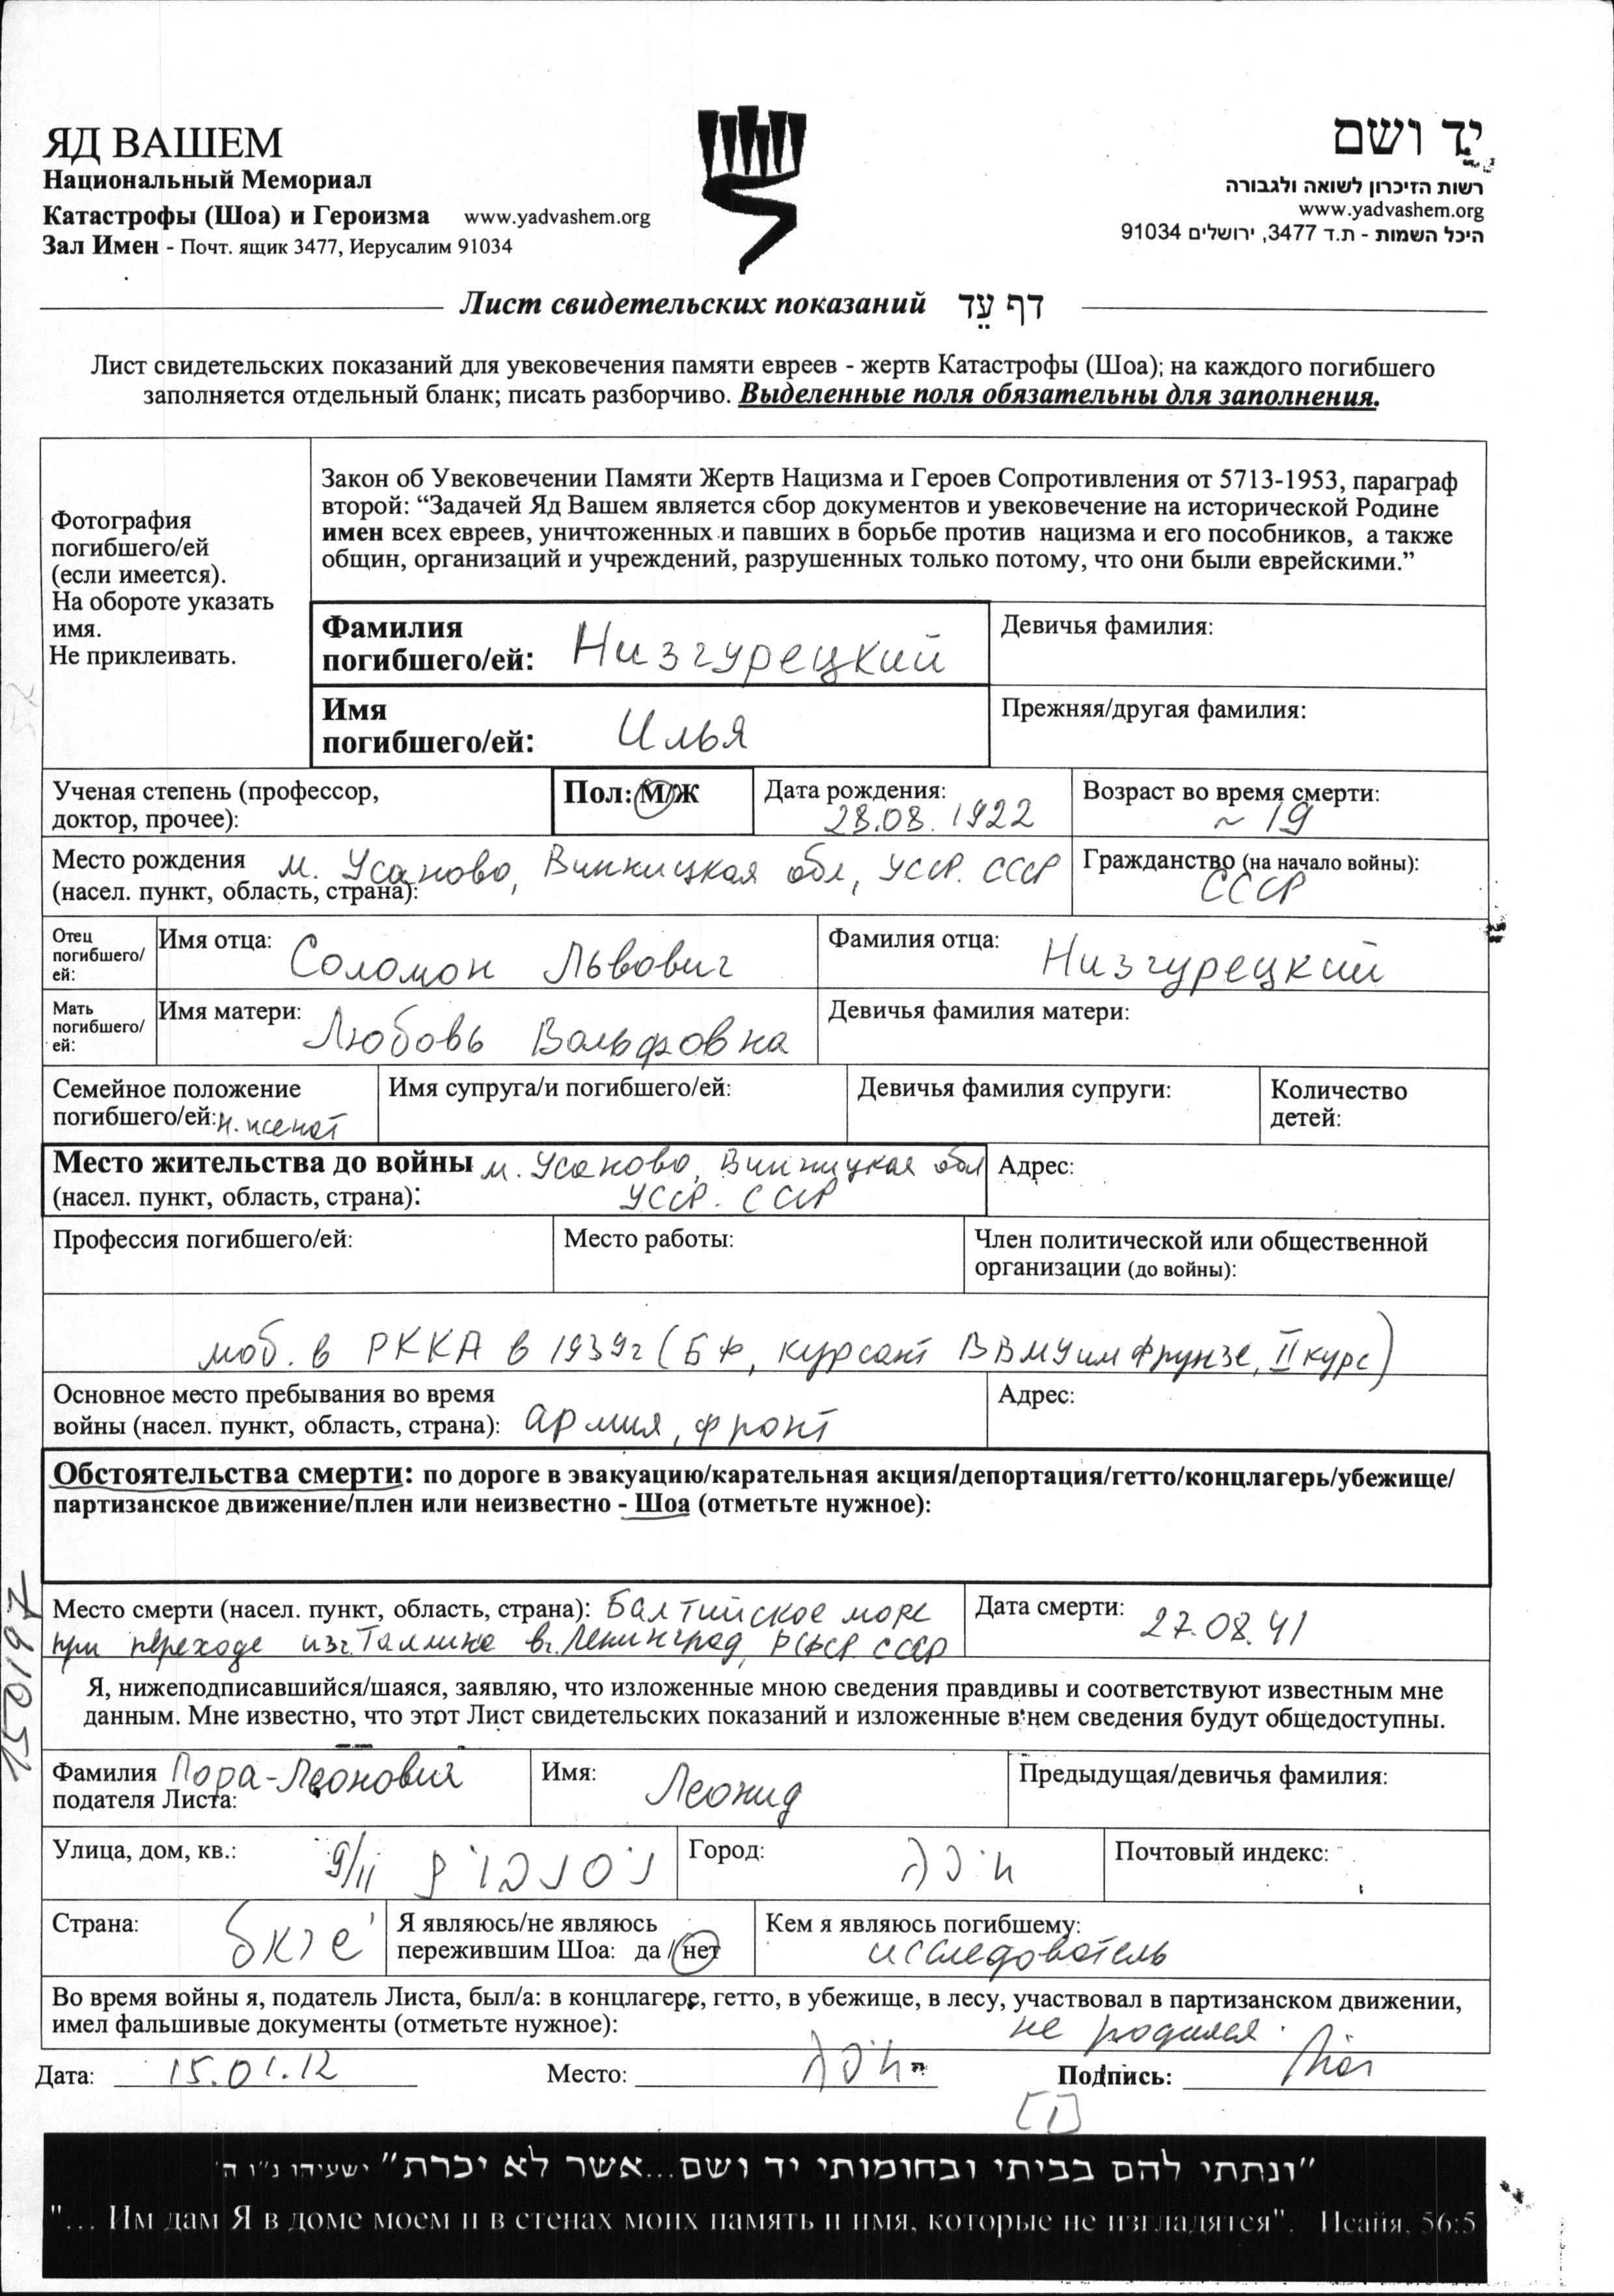 ЯД ВАШЕМ
Национальный Мемориал
Катастрофы (Шоа) и Героизма www.yadvashem.org
Зал Имен - Почт. ящик 3477, Иерусалим 91034
יָד וַשֵם
רשות הזיכרון לשואה ולגבורה
www.yadvashem.org
היכל השמות - ת.ד 3477, ירושלים 91034
Лист свидетельских показаний דף עֵד
Лист свидетельских показаний для увековечения памяти евреев - жертв Катастрофы (Шоа); на каждого погибшего
заполняется отдельный бланк; писать разборчиво. Выделенные поля обязательны для заполнения.
Фотография
погибшего/ей
(если имеется).
На обороте указать
имя.
Не приклеивать.
Закон об Увековечении Памяти Жертв Нацизма и Героев Сопротивления от 5713-1953, параграф
второй: “Задачей Яд Вашем является сбор документов и увековечение на исторической Родине
имен всех евреев, уничтоженных и павших в борьбе против нацизма и его пособников, а также
общин, организаций и учреждений, разрушенных только потому, что они были еврейскими.”
Фамилия
погибшего/ей: Низгурецкий
Девичья фамилия:
Имя
погибшего/ей: Илья
Прежняя/другая фамилия:
Ученая степень (профессор,
доктор, прочее):
Пол: М/Ж
Дата рождения:
28.08.1922
Возраст во время смерти:
~ 19
Место рождения м. Усаново, Винницкая обл, УССР. СССР
(насел. пункт, область, страна):
Гражданство (на начало войны):
СССР
Отец
погибшего/
ей:
Имя отца: Соломон Львович
Фамилия отца: Низгурецкий
Мать
погибшего/
ей:
Имя матери: Любовь Вольфовна
Девичья фамилия матери:
Семейное положение
погибшего/ей: н. женат
Имя супруга/и погибшего/ей:
Девичья фамилия супруги:
Количество
детей:
Место жительства до войны м. Усаново, Винницкая обл
(насел. пункт, область, страна): УССР. СССР
Адрес:
Профессия погибшего/ей:
Место работы:
Член политической или общественной
организации (до войны):
моб. в РККА в 1939г (БФ, курсант ВВМУ им Фрунзе, II курс)
Основное место пребывания во время
войны (насел. пункт, область, страна): армия, фронт
Адрес:
Обстоятельства смерти: по дороге в эвакуацию/карательная акция/депортация/гетто/концлагерь/убежище/
партизанское движение/плен или неизвестно - Шоа (отметьте нужное):
Место смерти (насел. пункт, область, страна): Балтийское море
при переходе из г. Таллина в г. Ленинград, РСФСР СССР
Дата смерти: 27.08.41
150197
Я, нижеподписавшийся/шаяся, заявляю, что изложенные мною сведения правдивы и соответствуют известным мне
данным. Мне известно, что этот Лист свидетельских показаний и изложенные в нем сведения будут общедоступны.
Фамилия Пора-Леонович
подателя Листа:
Имя: Леонид
Предыдущая/девичья фамилия:
Улица, дом, кв.: 9/11
Город:
Почтовый индекс:
Страна:
Я являюсь/не являюсь
пережившим Шоа: да / нет
Кем я являюсь погибшему:
исследователь
Во время войны я, податель Листа, был/а: в концлагере, гетто, в убежище, в лесу, участвовал в партизанском движении,
имел фальшивые документы (отметьте нужное): не родился
Дата: 15.01.12
Место:
Подпись:
[1]
"ונתתי להם בביתי ובחומותי יד ושם...אשר לא יכרת" ישעיהו נ"ו ה'
"... Им дам Я в доме моем и в стенах моих память и имя, которые не изгладятся". Исайя, 56:5